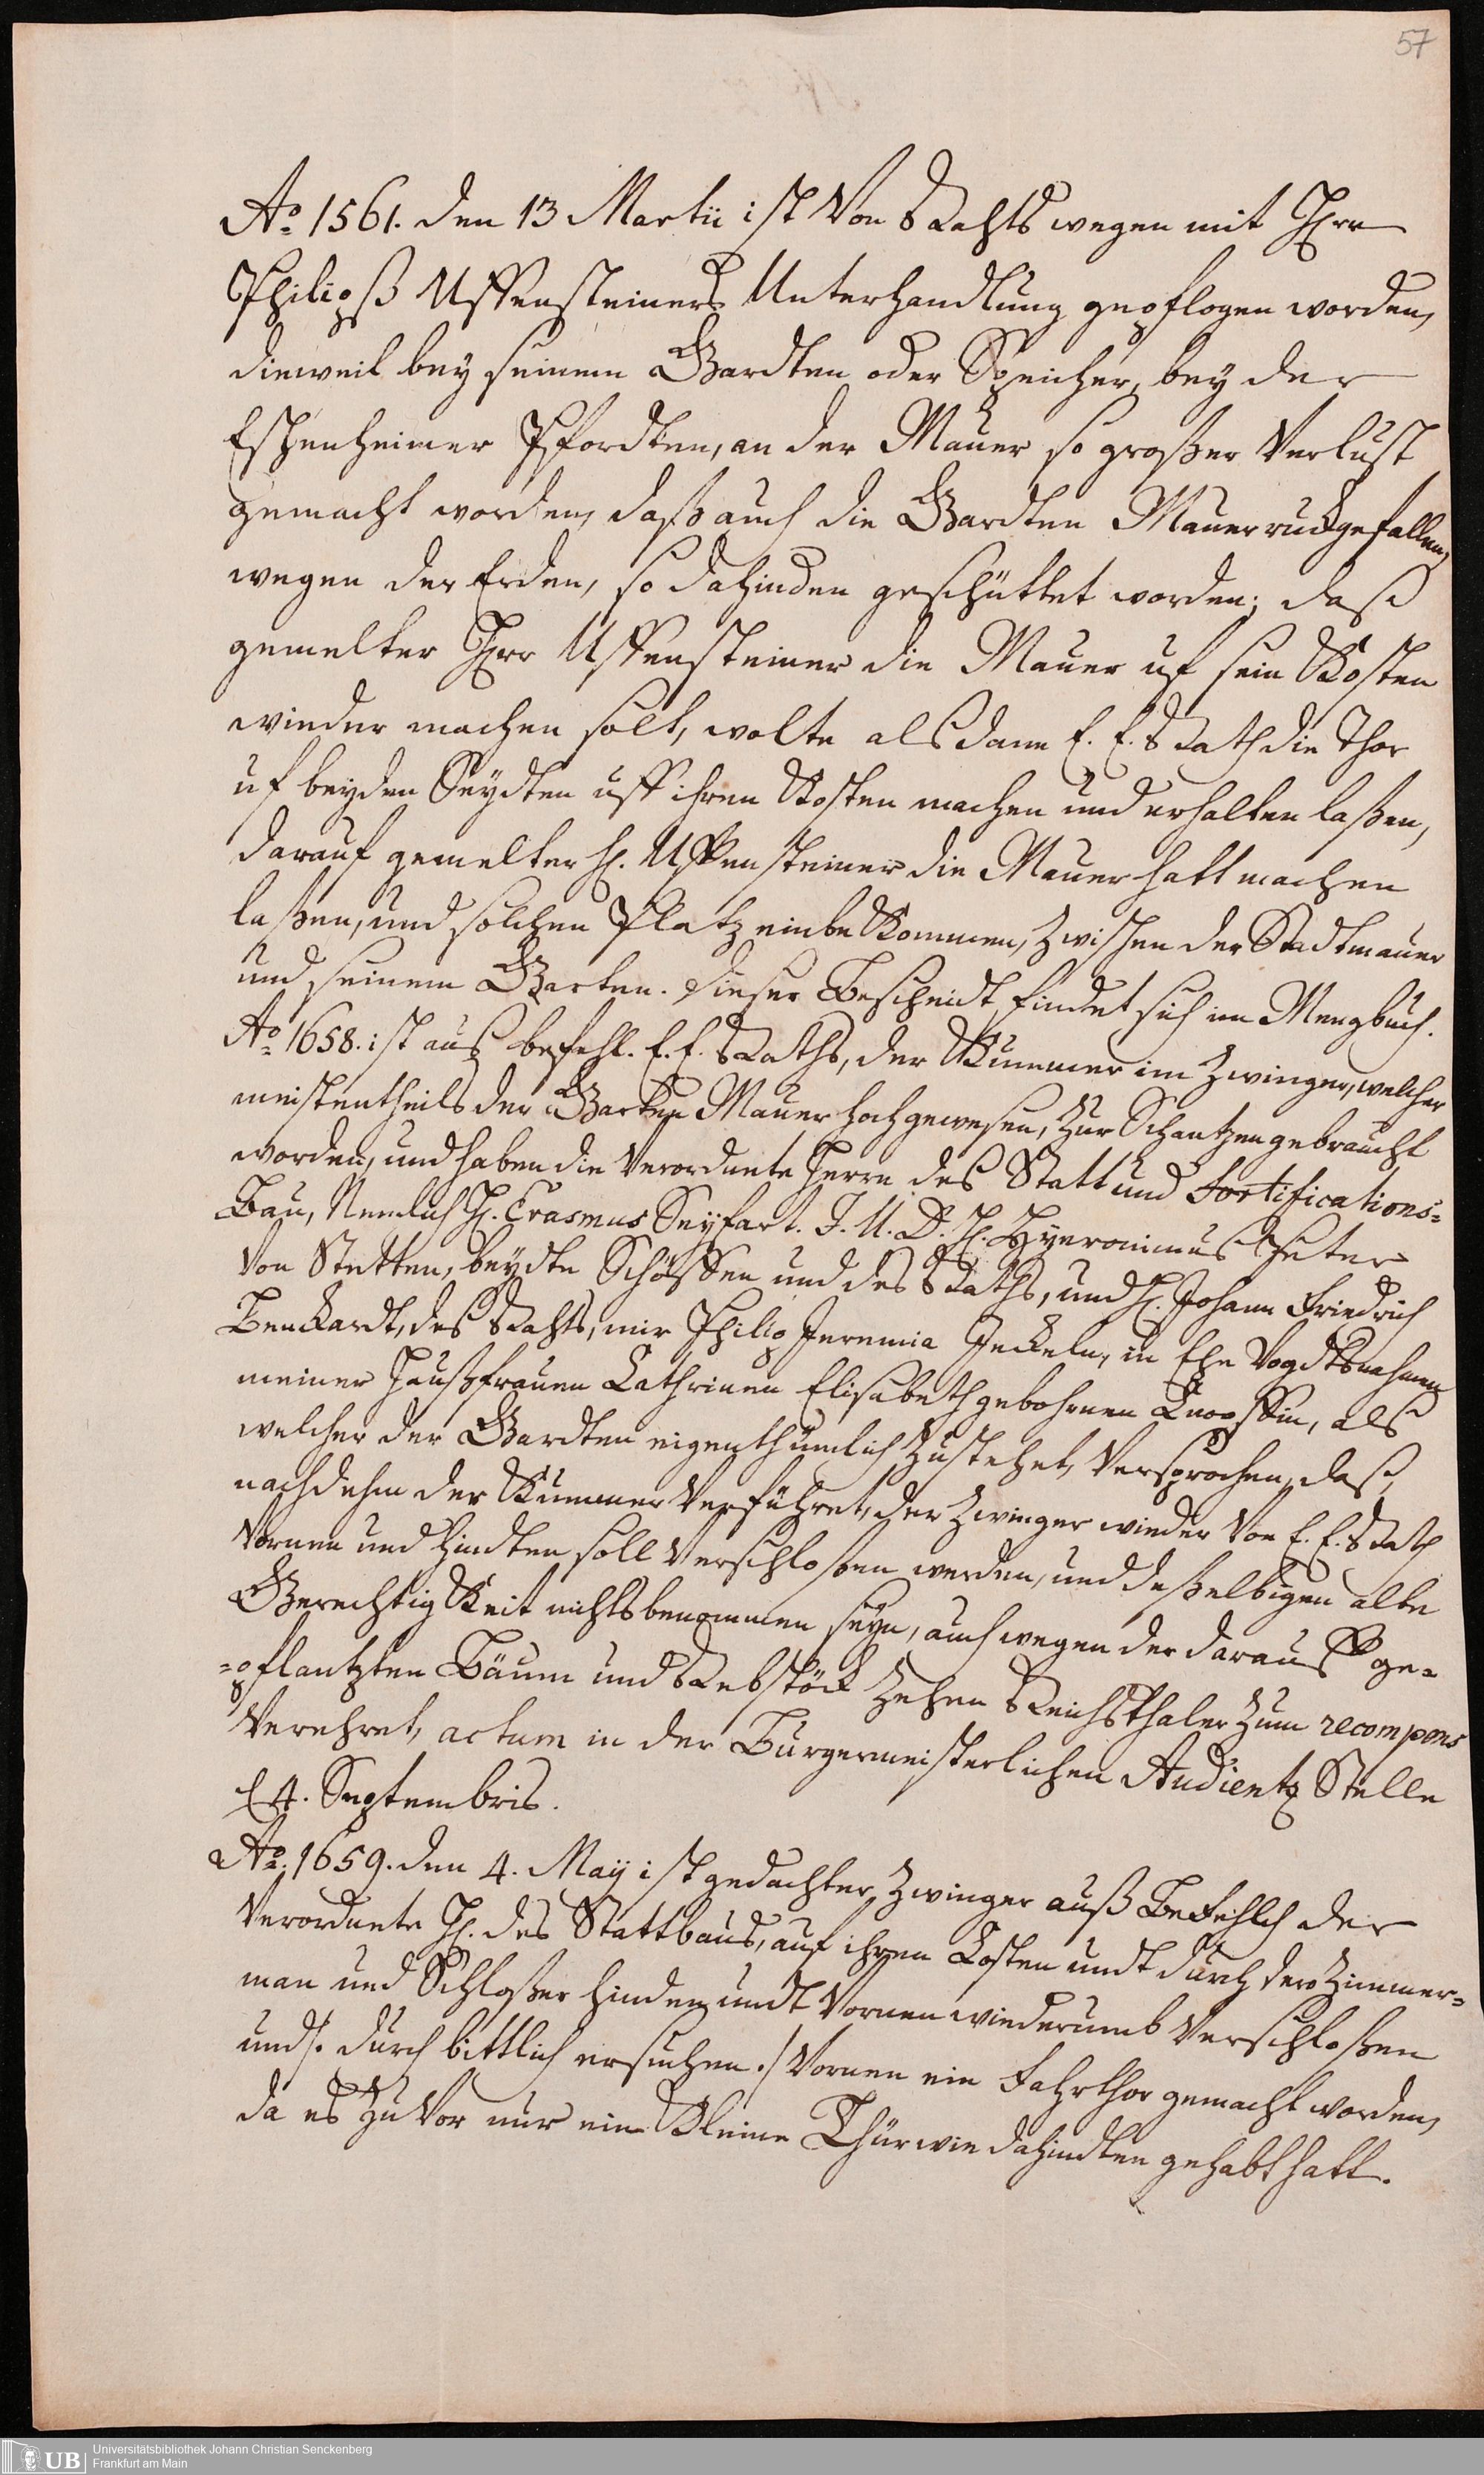 57
Ao. 1561. den 13 Martii ist Von Rahts wegen mit Hrr
Philipß Uffensteiners Unterhandlung gepflogen worden,
dieweil bey seinem Gardten oder Speicher, bey der
Eschenheimer Pfordten, an der Mauer so großer Verlust
gemacht worden, daß auch die Gardten Mauer ruckgefallen,
wegen der Erden, so dahinden geschüttet worden; daß
gemelter Hrr Uffensteiner die Mauer uf sein Kosten
wieder machen solt, wolte alsdann E. E. Rath die Thor
uf beyden Seydten uff ihren Kosten machen und erhalten laßen,
darauf gemelter H. Uffensteiner die Mauer hatt machen
laßen, und solchen Platz einbekommen, zwischen der Stadtmauer
und seinem Garten. dieser Bescheidt findet sich im Mengbuch.
Ao. 1658. ist auß befehl. E. E. Raths, der Kummer im Zwinger, welcher
meistentheils der Garten Mauer hoch gewesen, zur Schantzen gebraucht
worden, und haben die Verordnete Herrn des Statt und Fortifications-
Bau, Nemlich H. Erasmus Seyfart. J. U. D. H. Hyeronimus Peter
Von Stetten, beydte Schöffen und des Raths, und H. Johann Friedrich
Benckardt, des Rahts, mir Philip Jeremia Jeckeln, in Ehe Vogdtsnahmen
meiner Haußfrauen Cathrinen Elisabeth gebohrnen Knopffin, als
welcher der Gardten eigenthümlich zustehet, Versprochen, daß,
nachdehm der Kummer Verführet, der Zwinger wieder Von E. E. Rath
Vornen und hindten soll Verschloßen werden, und deßelbigen alte
Gerechtigkeit nichts benommen seyn, auch wegen der darauff ge-
-pflantzten Bäum und Rebstöck zehen Reichsthaler zum recompens
Verehret, actum in der Bürgermeisterlichen Audientz Stelle
d 4. Septembris.
Ao. 1659. den 4. May ist gedachter Zwinger auß Befehlch der
Verordnete H. des Stattbaus, auf ihren Costen undt durch dero Zimmer-
man und Schloßer hinden undt Vornen wiederumb Verschloßen
und /. durch bittlich ersuchen ./ Vornen ein Fahrthor gemacht worden,
da es zuvor nur ein Kleine Thür wie dahindten gehabt hatt.
UB Universitätsbibliothek Johann Christian Senckenberg
Frankfurt am Main